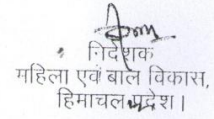 निदेशक
महिला एवं बाल विकास,
हिमाचल प्रदेश।